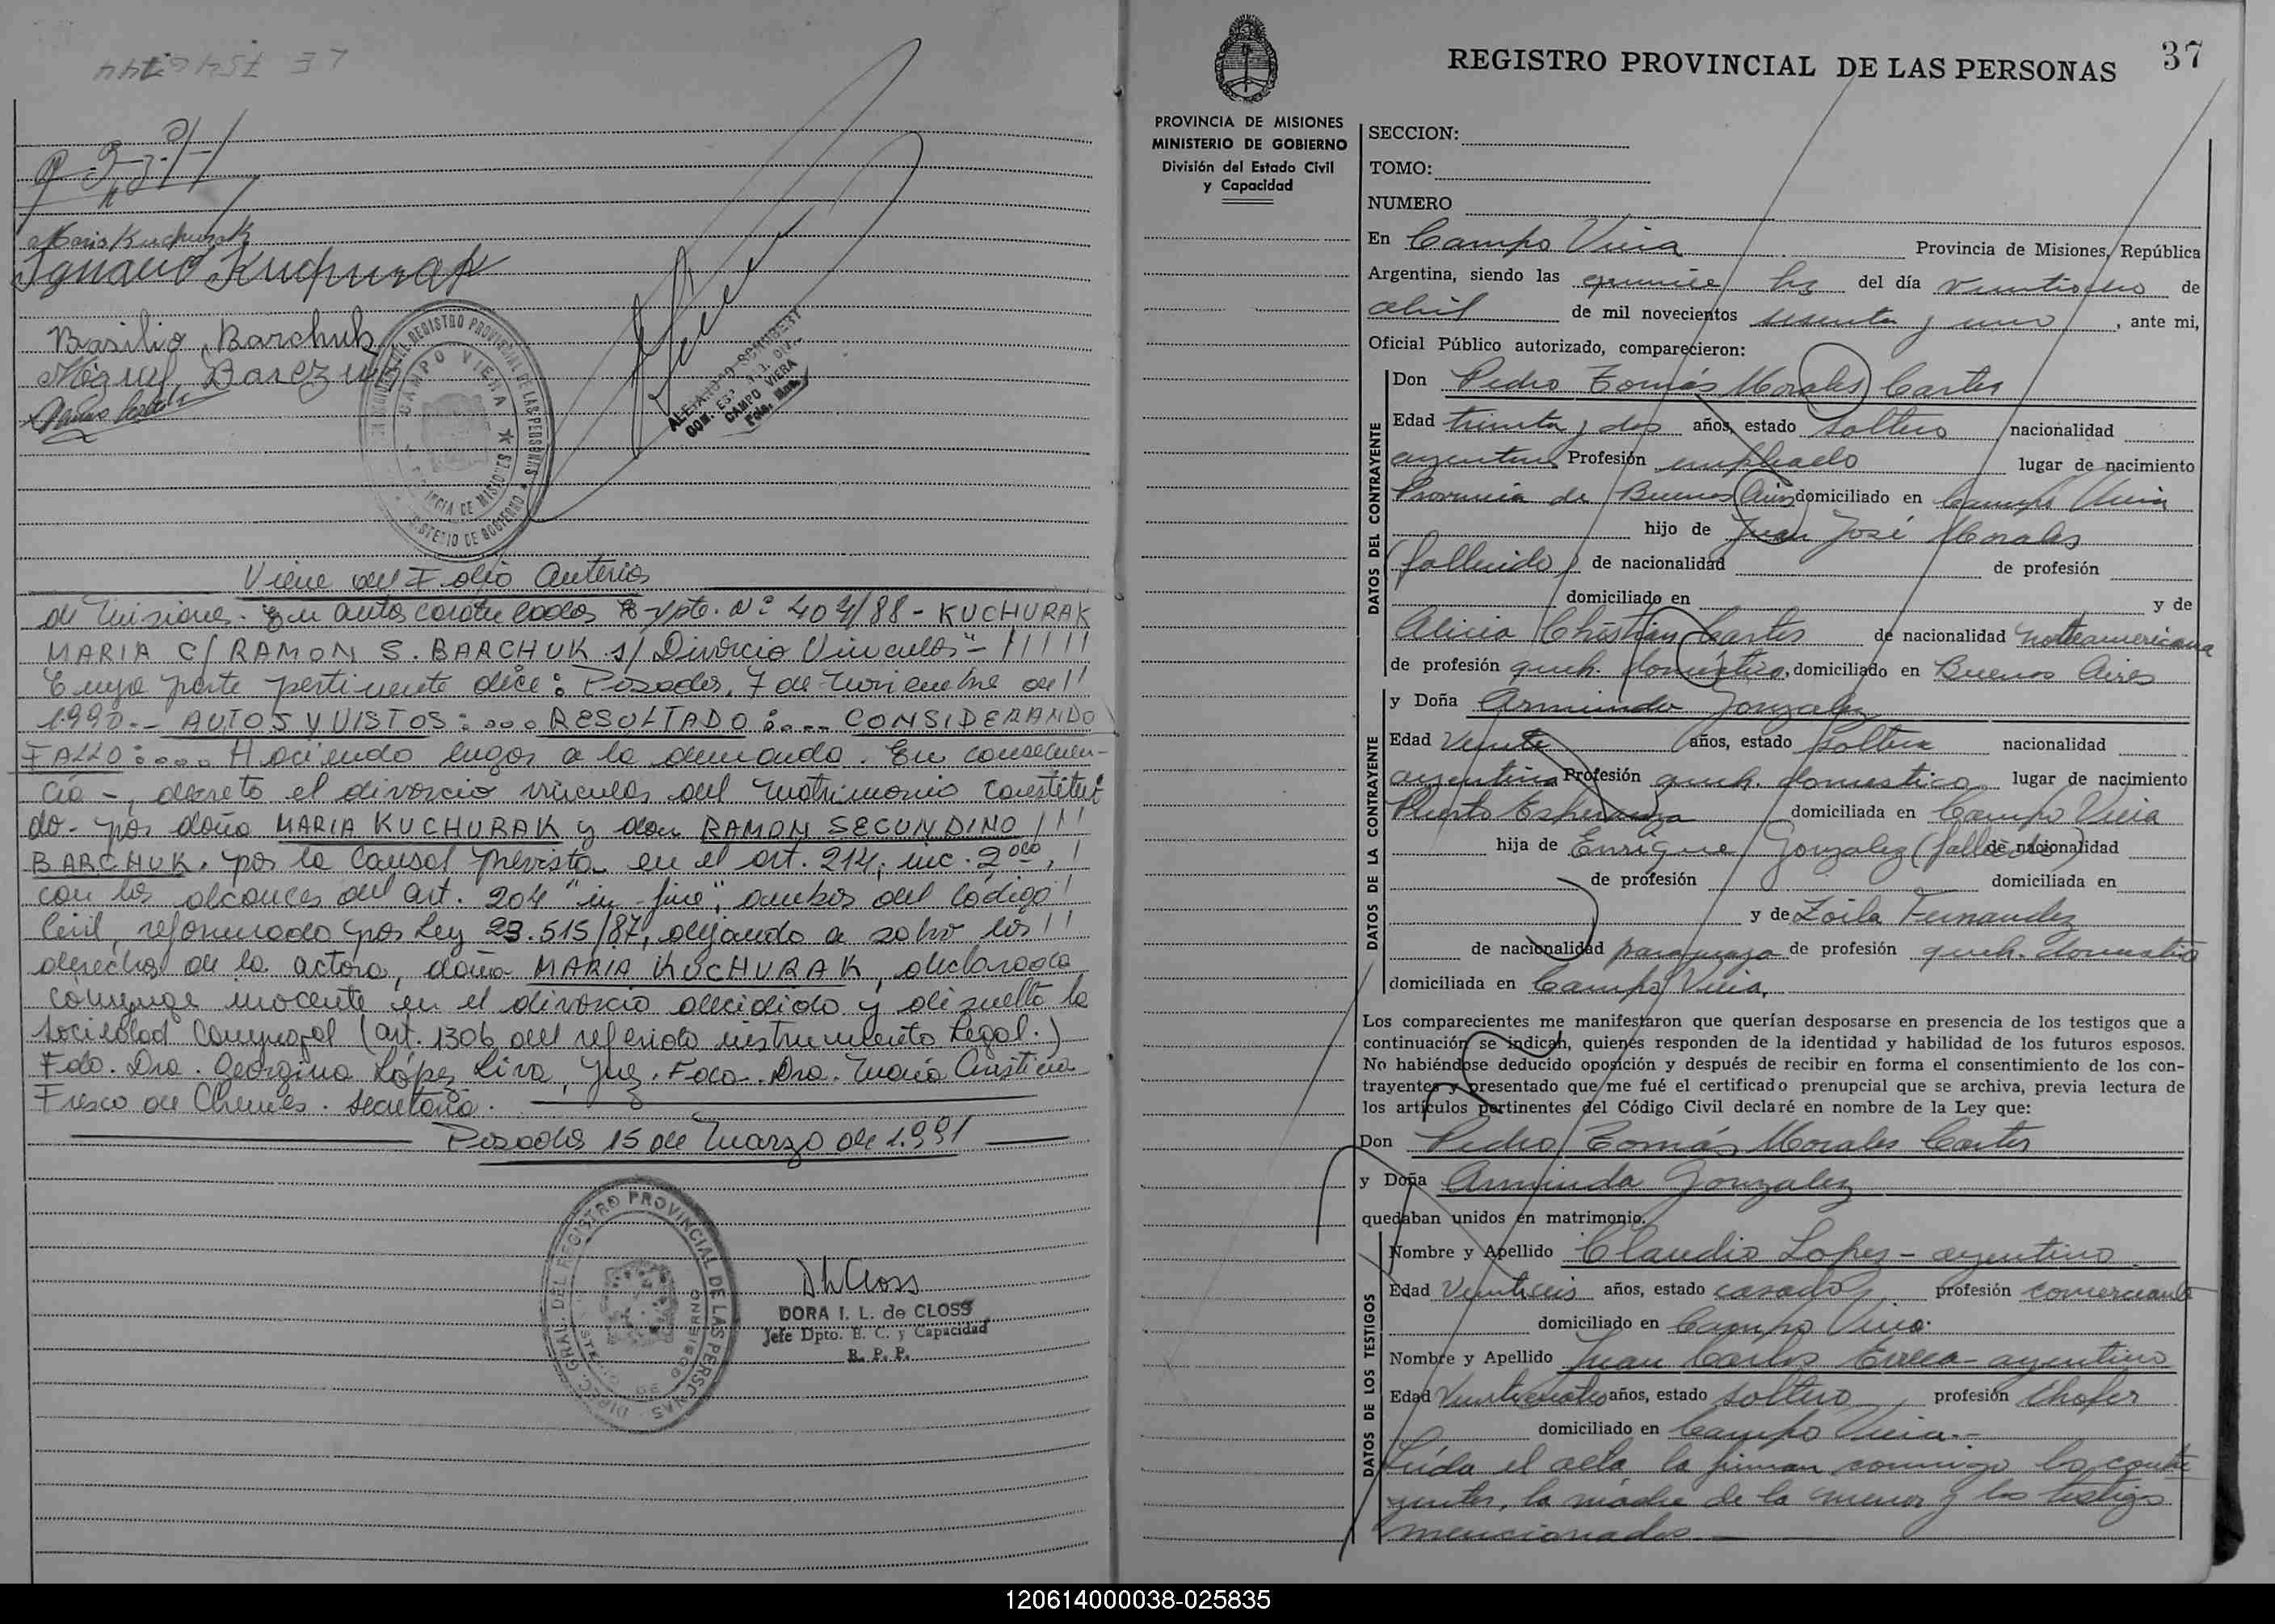 LE 7549744
Maria Kuchurak
Ignacio Kuchurak
Basilio Barchuk
Miguel
CAMPO VIERA
ALEJANDRO SCHUBERT
CAMPO VIERA
Viene del Folio Anterior
de Misiones. En autos caratulados Expte. Nº 404/88 - KUCHURAK
MARIA C/ RAMON S. BARCHUK s/ Divorcio Vincular"-
Cuya parte pertinente dice: Posadas, 7 de Noviembre de
1990.- AUTOS Y VISTOS:... RESULTADO:.... CONSIDERANDO
FALLO:.... Haciendo lugar a la demanda. En consecuen-
cia -, decreto el divorcio vincular del matrimonio constitui
do - por doña MARIA KUCHURAK y don RAMON SECUNDINO
BARCHUK. por la causal prevista en el art. 214, inc. 2
con los alcances del art. 204 "in-fine", ambos del Código
Civil, reformado por Ley 23.515/87, dejando a salvo los
derechos de la actora, doña MARIA KUCHURAK, declarada
cónyuge inocente en el divorcio decidido y disuelta la
sociedad Conyugal (art. 1306 del referido instrumento Legal.)
Fdo. Dra. Georgina López Liva, Juez. Fdo. Dra. María Cristina
Fresco de Churies. Secretaria.
Posadas 15 de Marzo de 1.991
DORA I. L. de CLOSS
Jefe Dpto. E. C. y Capacidad
R. P. P.
REGISTRO PROVINCIAL DE LAS PERSONAS 37
PROVINCIA DE MISIONES
MINISTERIO DE GOBIERNO
División del Estado Civil
y Capacidad
SECCION:
TOMO:
NUMERO
En Campo Viera Provincia de Misiones, República
Argentina, siendo las quince hs del día veintiocho de
abril de mil novecientos sesenta y uno, ante mi,
Oficial Público autorizado, comparecieron:
DATOS DEL CONTRAYENTE
Don Pedro Tomás Morales Carter
Edad treinta y dos años, estado soltero nacionalidad
argentina Profesión empleado lugar de nacimiento
Provincia de Buenos Aires domiciliado en Campo Viera
hijo de Juan José Morales
(fallecido) de nacionalidad de profesión
domiciliado en y de
Alicia Christian Carter de nacionalidad norteamericana
de profesión queh. doméstico, domiciliado en Buenos Aires
DATOS DE LA CONTRAYENTE
y Doña Arminda Gonzalez
Edad Veinte años, estado soltera nacionalidad
argentina Profesión queh. domestico lugar de nacimiento
Puerto Esperanza domiciliada en Campo Viera
hija de Enrique Gonzalez (fallecido) de nacionalidad
de profesión domiciliada en
y de Zoila Fernandez
de nacionalidad paraguaya de profesión queh. domestico
domiciliada en Campo Viera.
Los comparecientes me manifestaron que querían desposarse en presencia de los testigos que a
continuación se indican, quienes responden de la identidad y habilidad de los futuros esposos.
No habiéndose deducido oposición y después de recibir en forma el consentimiento de los con-
trayentes y presentado que me fué el certificado prenupcial que se archiva, previa lectura de
los artículos pertinentes del Código Civil declaré en nombre de la Ley que:
Don Pedro Tomás Morales Carter
y Doña Arminda Gonzalez
quedaban unidos en matrimonio.
DATOS DE LOS TESTIGOS
Nombre y Apellido Claudio Lopez - argentino
Edad Veintiseis años, estado casado profesión comerciante
domiciliado en Campo Viera.
Nombre y Apellido Juan Carlos argentino
Edad Veinticuatro años, estado soltero profesión Chofer
domiciliado en Campo Viera.-
Leída el acta la firman conmigo los contra
yentes, la madre de la menor y los testigos
mencionados
120614000038-025835